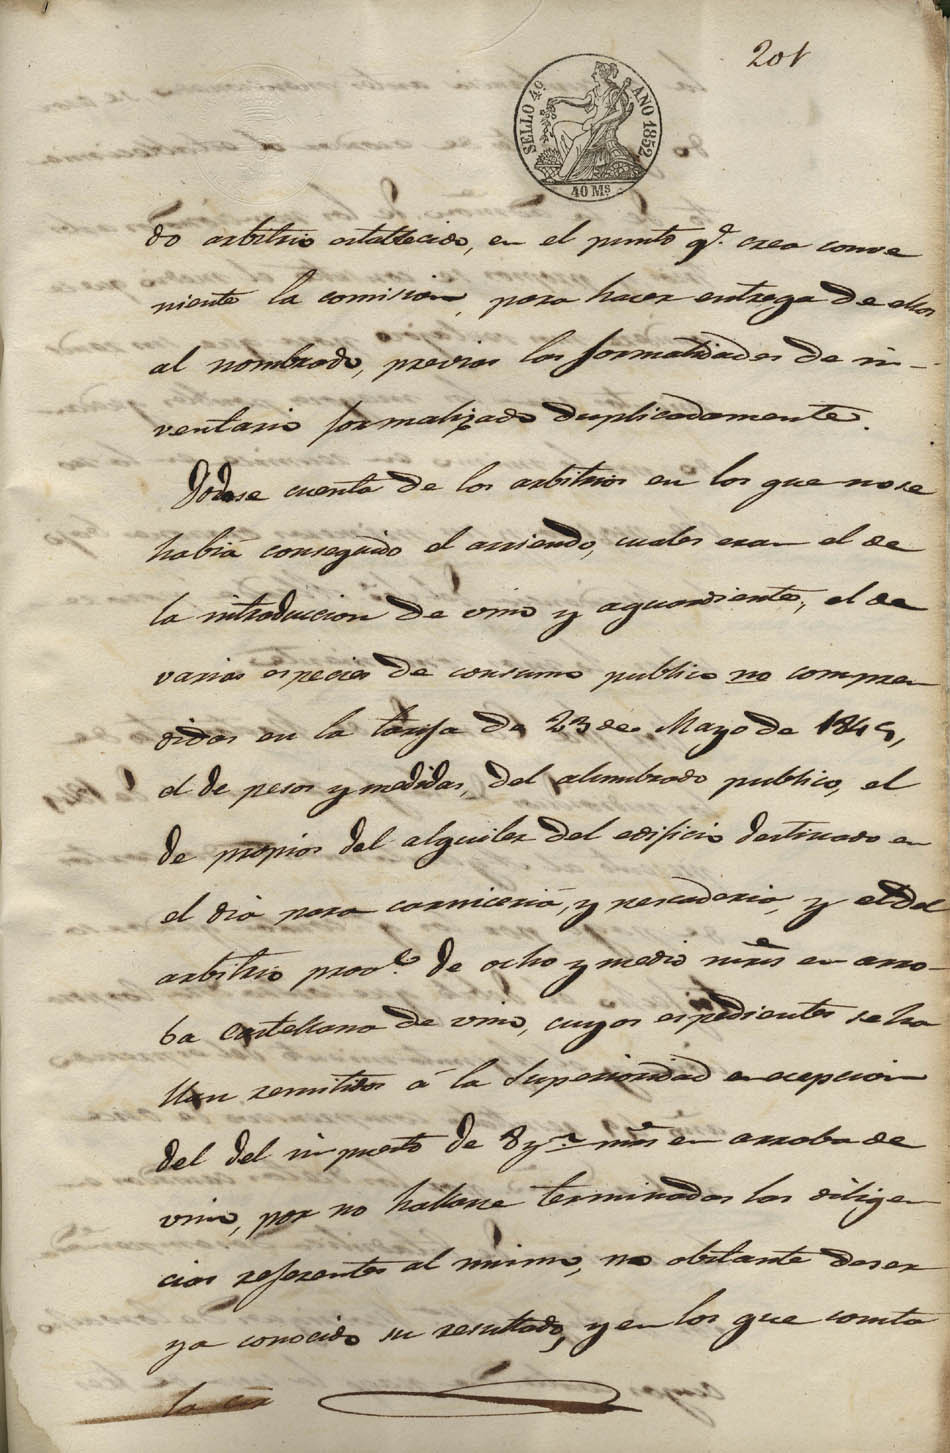 201
SELLO 4º AÑO 1852
40 Ms
do arbitrio establecido, en el punto qe. crea conve
niente la comision, para hacer entrega de ellos
al nombrado, previas las formalidades de in-
ventario formalizado duplicadamente.
Diose cuenta de los arbitrios en los que no se
habia conseguido el arriendo, cuales eran el de
la introduccion de vino y aguardiente, el de
varias especies de consumo publico no compren
didas en la tarifa de 23 de Mayo de 1845,
el de pesos y medidas, del alumbrado publico, el
de propios del alquiler del edificio destinado en
el dia para carniceria, y pescaderia, y el del
arbitrio provl. de ocho y medio mrs en arro-
ba Castellana de vino, cuyos espedientes se ha
llan remitidos á la Superioridad en ecepcion
del del impuesto de 8 y mrs en arroba de
vino, por no hallarse terminadas las diligen
cias referentes al mismo, no obstante de ser
ya conocido su resultado, y en los que consta
la